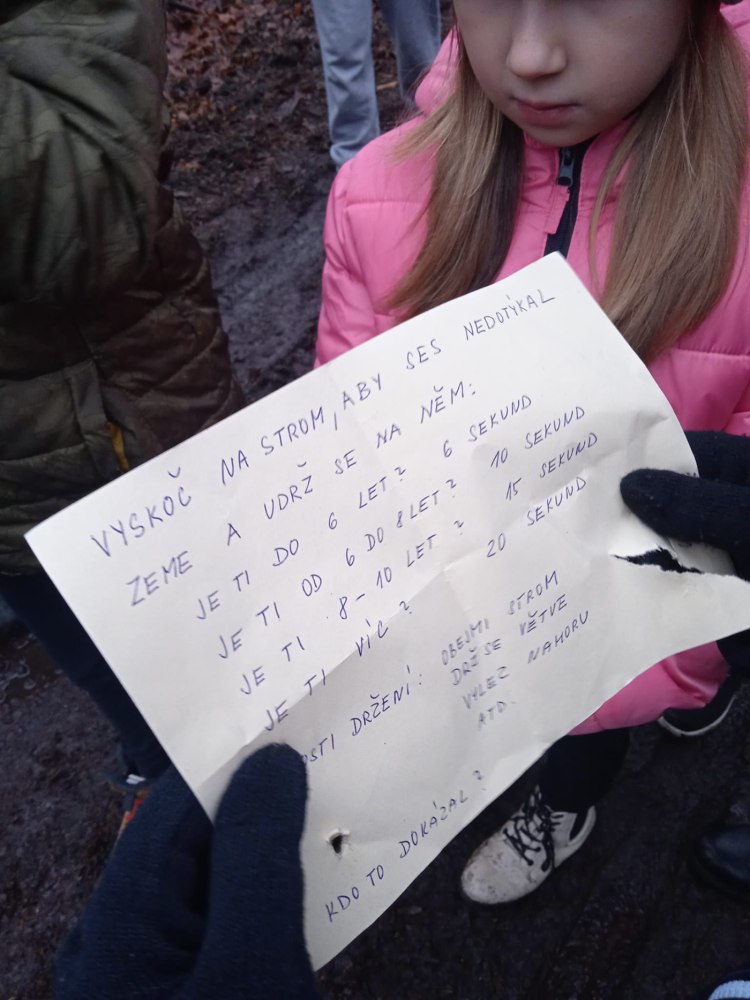 VYSKOČ NA STROM, ABY SES NEDOTÝKAL
ZEMĚ A UDRŽ SE NA NĚM:
JE TI DO 6 LET? 6 SEKUND
JE TI OD 6 DO 8 LET? 10 SEKUND
JE TI 8-10 LET? 15 SEKUND
JE TI VÍC? 20 SEKUND
DRŽENÍ: OBEJMI STROM
DRŽ SE VĚTVE
VYLEZ NAHORU
ATD.
KDO TO DOKÁZAL?